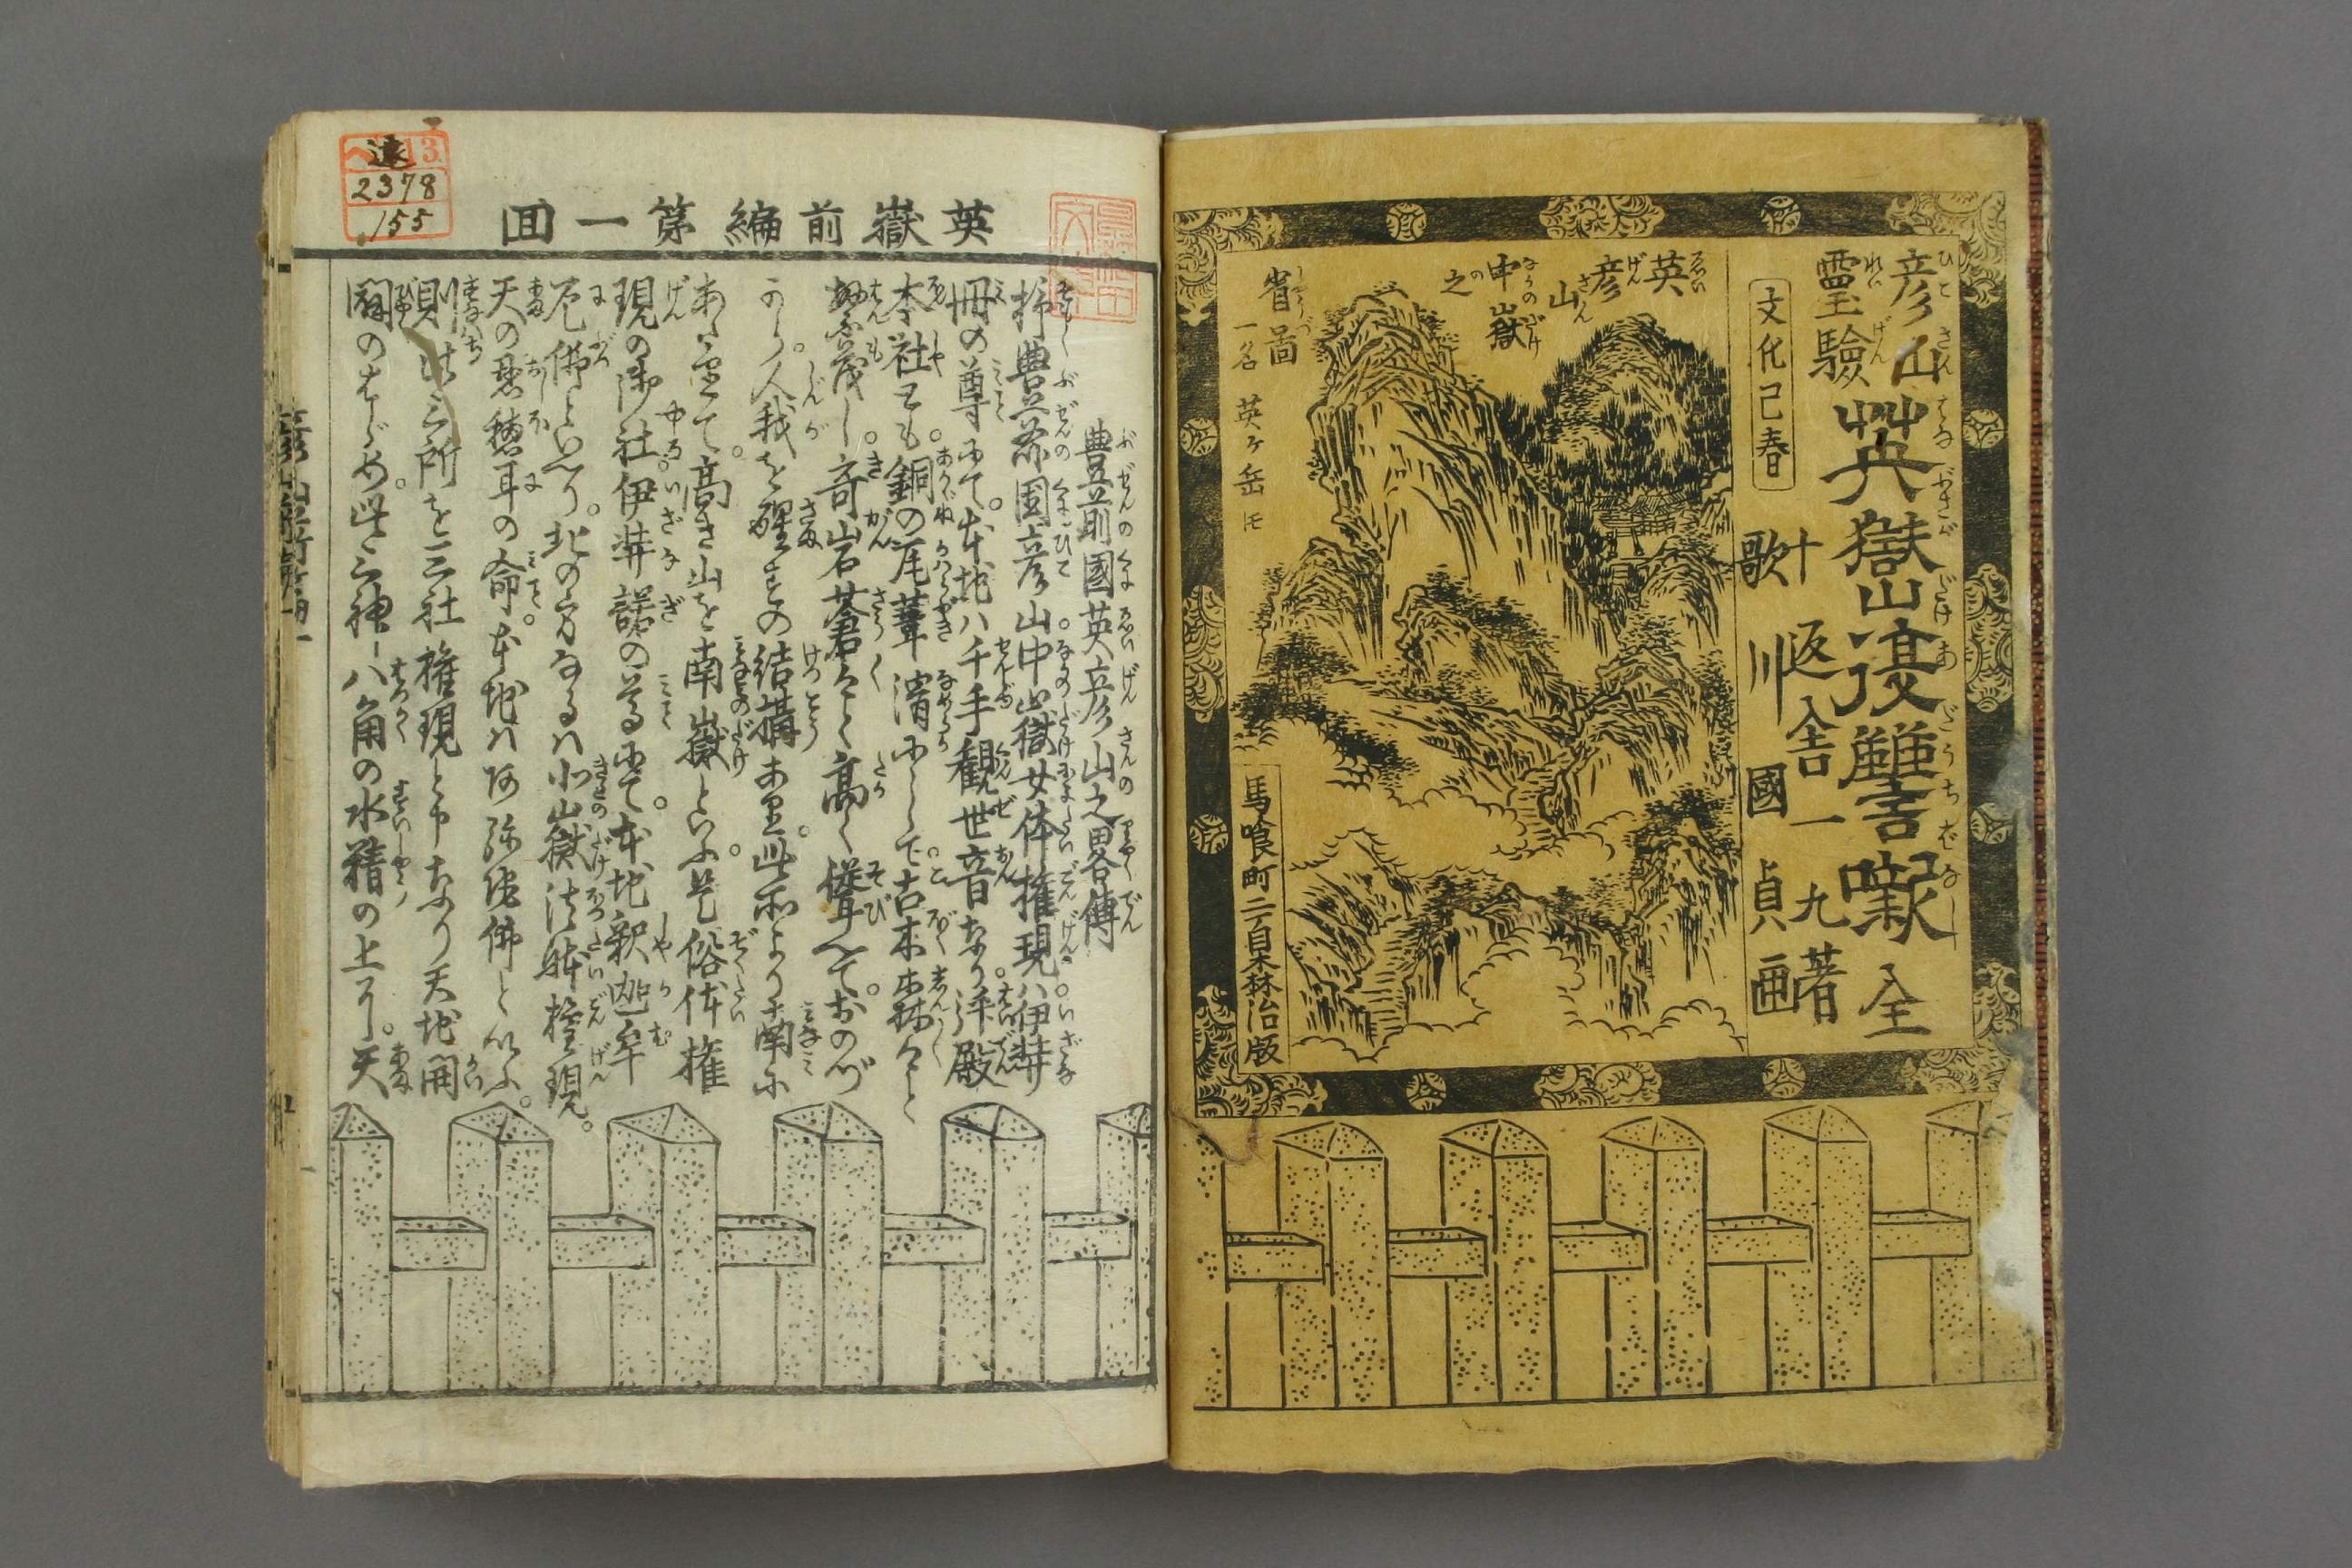 彦山
靈驗
英嶽山復讐噺 全
文化己春
十返舎一九著
歌川國貞画
英彦山
中嶽
之
省啚
一名 英ヶ岳 トモ
馬喰町二丁目森治版
英嶽前編第一回
豊前國英彦山之畧傳
抑豊前国彦山中山嶽女体権現ハ伊弉
冊の尊にて。本地ハ千手観世音なり拝殿
本社とも。銅の瓦葺滑にして。古木森々と
繁茂し。奇岩蒼々と高く聳へておのづ
から。人我を醒すの結構あり。此所より南に
あたつて。高き山を南嶽といふ。是俗体権
現の御社。伊弉諾の尊にて。本地釈迦牟
尼佛といへり。北の方なるハ北山嶽法躰権現。
天の忍穂耳の命。本地ハ阿弥陀佛といふ。
則此三所を三社権現と申なり天地開
闢のはじめ。此三神八角の水精の上に。天
遠
13
2378
155